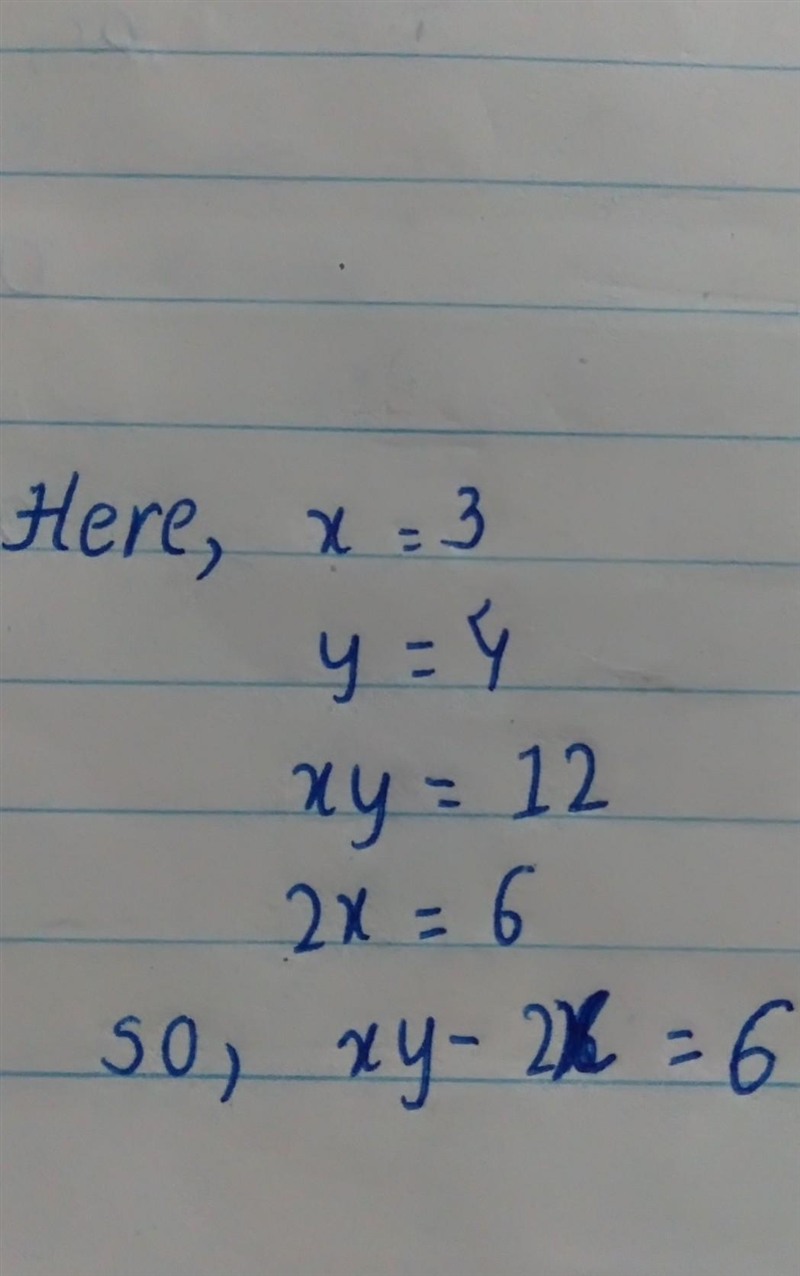 Here, x = 3
y = 4
xy = 12
2x = 6
so, xy - 2x = 6